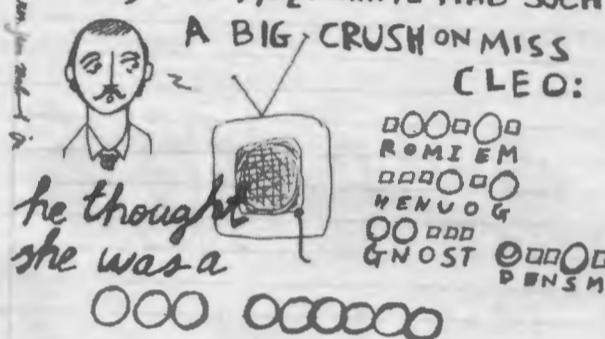 HAD SUCH
A BIG CRUSH ON MISS
CLEO:
ROMIEM
GNOST
DENSM
he thought
she was a